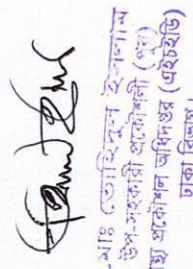 মোঃ তৌহিদুল ইসলাম
উপ-সহকারী প্রকৌশলী (পুর)
স্বাস্থ্য প্রকৌশল অধিদপ্তর (এইচইডি)
ঢাকা বিভাগ,